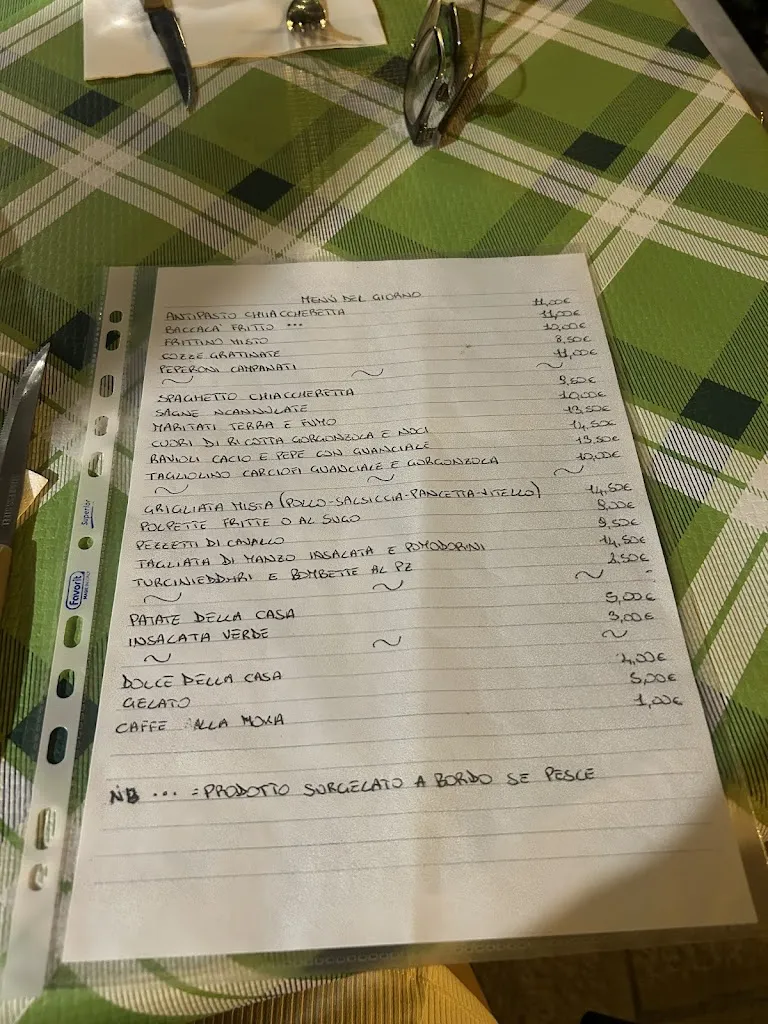 MENÙ DEL GIORNO
ANTIPASTO CHIACCHERETTA 11,00€
BACCALA' FRITTO *** 11,00€
FRITTINO MISTO 10,00€
COZZE GRATINATE 8,50€
PEPERONI CAMPANATI 11,00€
SPAGHETTO CHIACCHERETTA 9,50€
SAGNE NCANNULATE 10,00€
MARITATI TERRA E FUMO 13,50€
CUORI DI RICOTTA GORGONZOLA E NOCI 14,50€
RAVIOLI CACIO E PEPE CON GUANCIALE 13,50€
TAGLIOLINO CARCIOFI GUANCIALE E GORGONZOLA 10,00€
GRIGLIATA MISTA (POLLO-SALSICCIA-PANCETTA-VITELLO) 14,50€
POLPETTE FRITTE O AL SUGO
PEZZETTI DI CAVALLO 9,50€
TAGLIATA DI MANZO INSALATA E POMODORINI 14,50€
TURCINIEDDHRI E BOMBETTE AL PZ 2,50€
PATATE DELLA CASA 5,00€
INSALATA VERDE 3,00€
DOLCE DELLA CASA
GELATO 5,00€
CAFFE ALLA MOKA 1,00€
NB *** = PRODOTTO SURGELATO A BORDO SE PESCE
Superior
Favorit